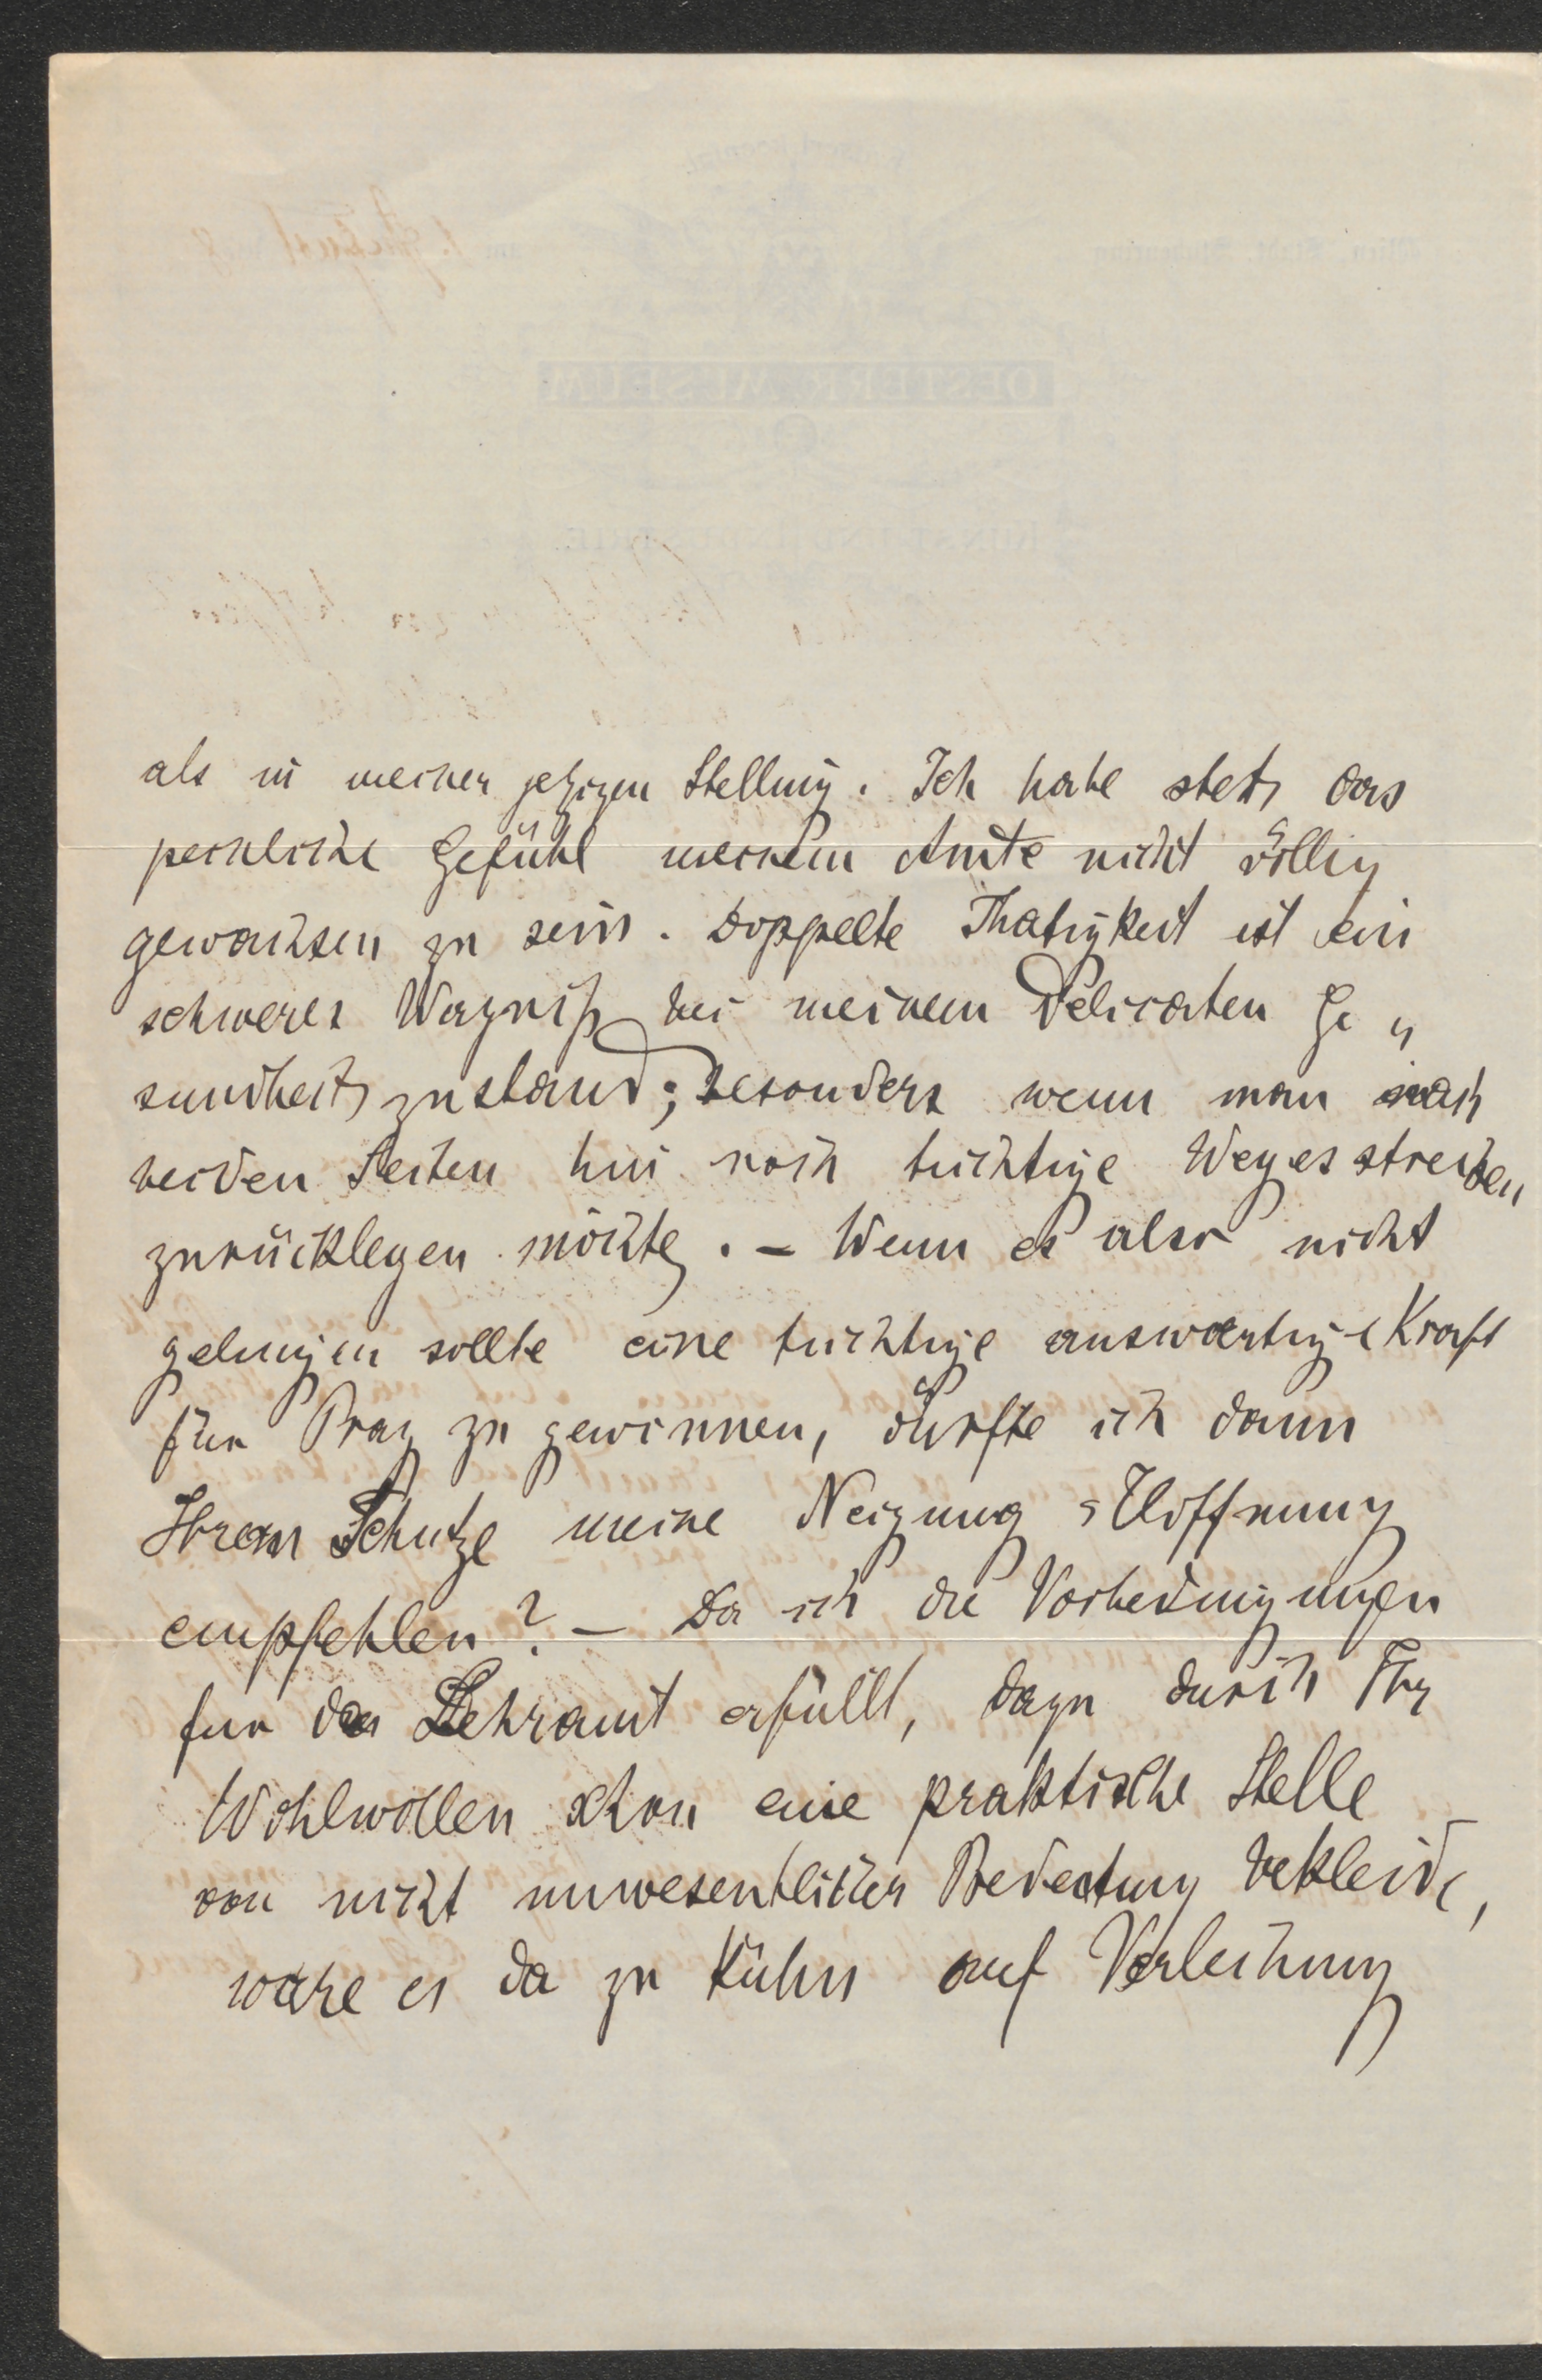 als in meiner jetzigen Stellung. Ich habe stets das
peinliche Gefühl meinem Amte nicht völlig
gewachsen zu sein. Doppelte Thätigkeit ist ein
schweres Wagniß bei meinem delicaten Ge„
sundheitszustand; besonders wenn man nach
beiden Seiten hin noch tüchtige Wegesstrecken
zurücklegen möchte. – Wenn es also nicht
gelingen sollte eine tüchtige auswärtige Kraft
für Prag zu gewinnen, dürfte ich dann
Ihrem Schutze meine Neigung & Hoffnung
empfehlen? – Da ich die Vorbedingungen
für das Lehramt erfüllt, dazu durch Ihr
Wohlwollen schon eine praktische Stelle
von nicht unwesentlicher Bedeutung bekleide,
wäre es da zu kühn auf Verleihung